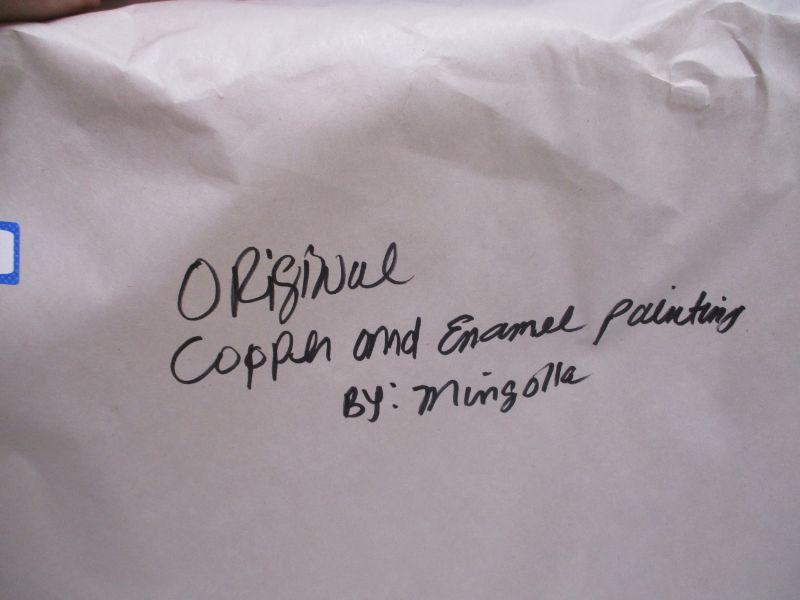 Original
Copper and Enamel painting
By: Mingolla